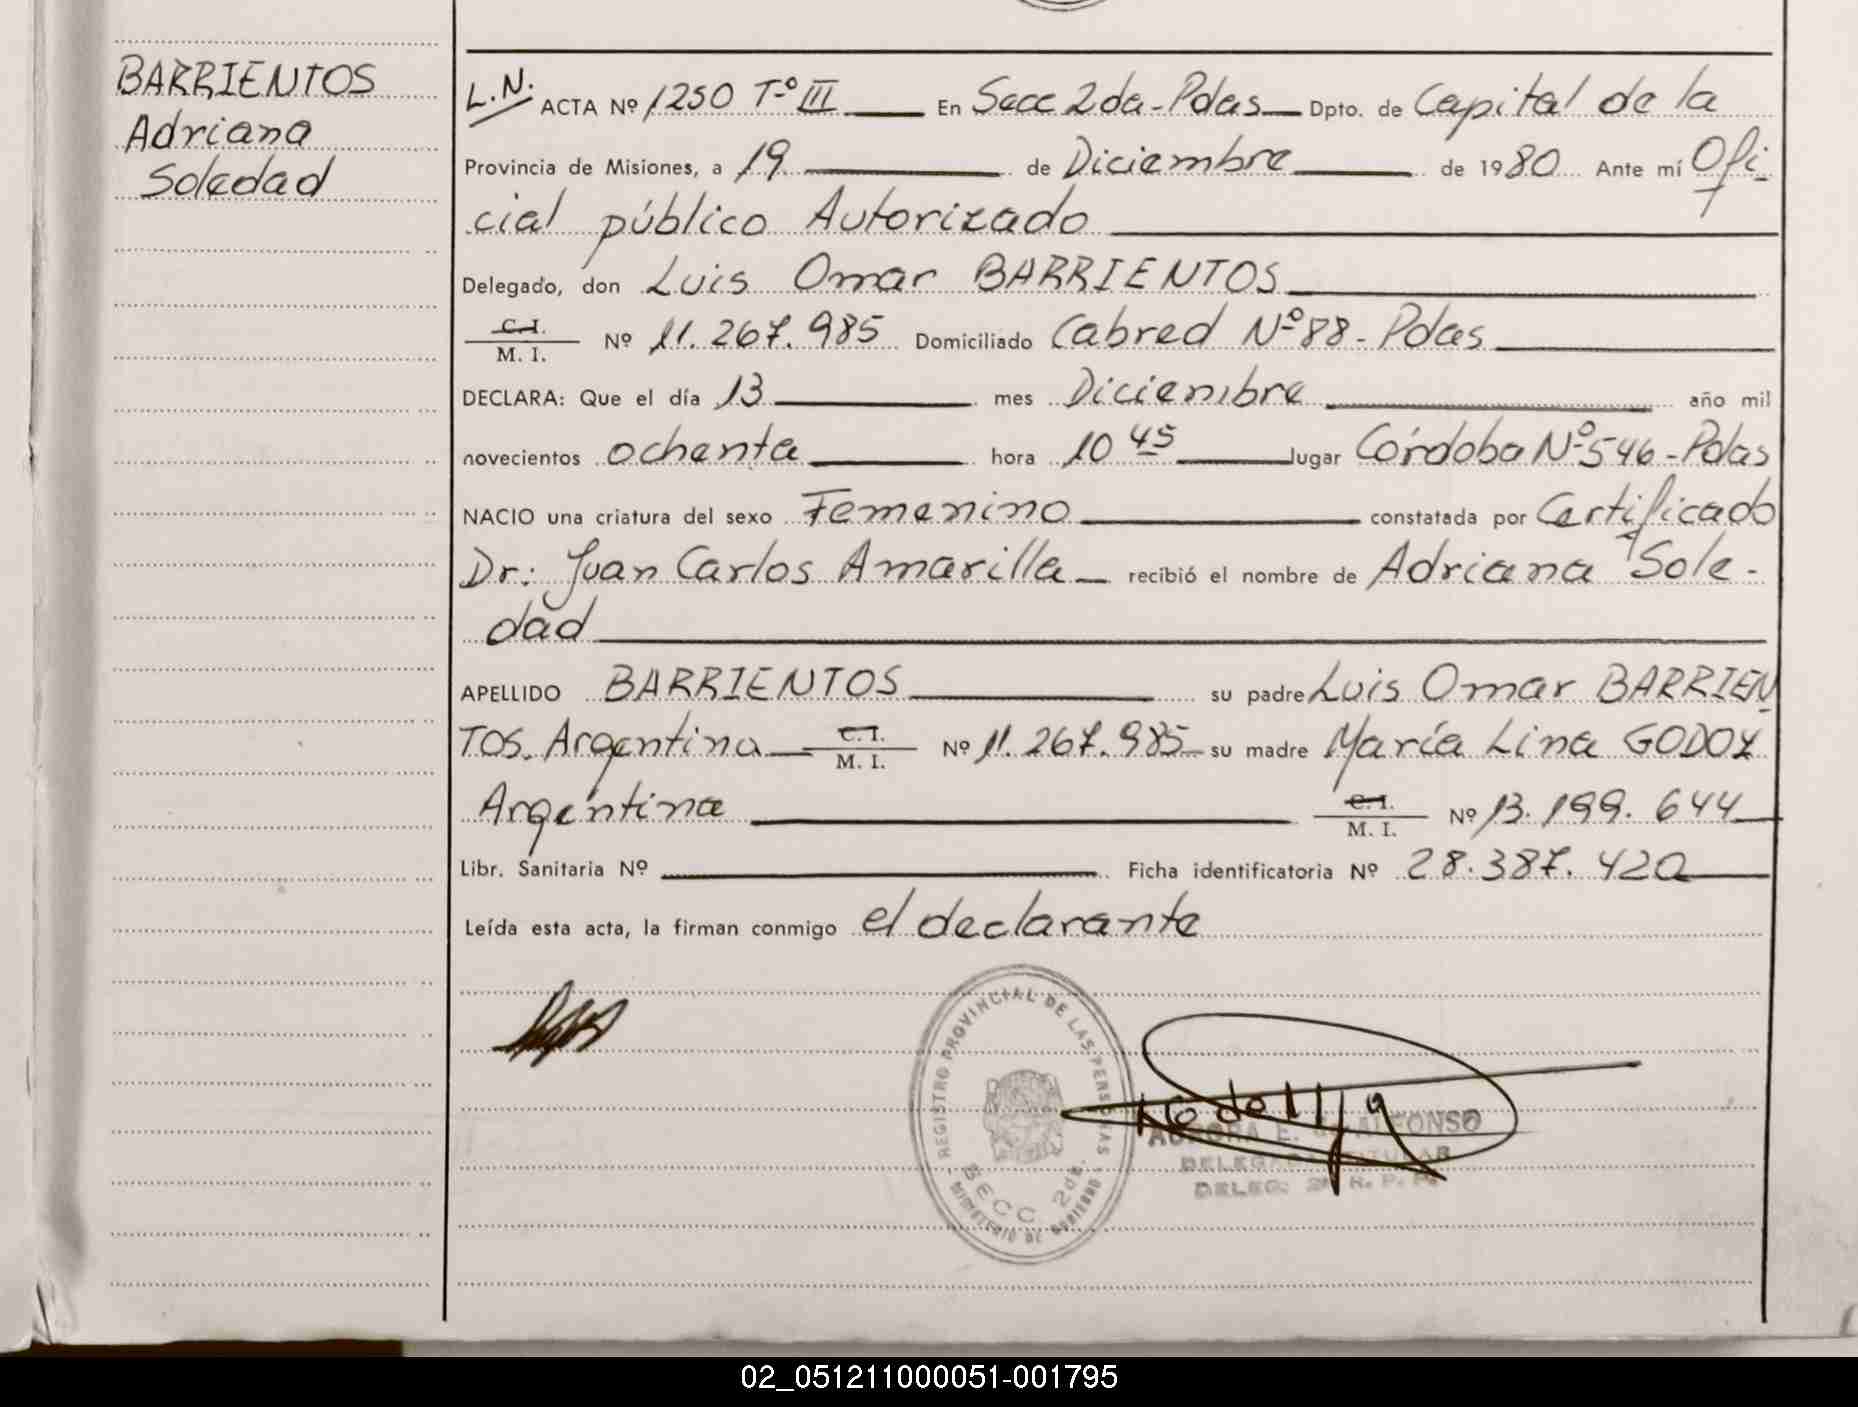 BARRIENTOS
Adriana
Soledad
L.N. ACTA Nº 1250 Tº III En Secc 2da-Pdas Dpto. de Capital de la
Provincia de Misiones, a 19 de Diciembre de 1980 Ante mí Ofi
cial público Autorizado
Delegado, don Luis Omar BARRIENTOS
C.I.
M. I. Nº 11.267.985 Domiciliado Cabred Nº 88 - Pdas
DECLARA: Que el día 13 mes Diciembre año mil
novecientos ochenta hora 10 45 lugar Córdoba Nº 546 - Pdas
NACIO una criatura del sexo Femenino constatada por Certificado
Dr: Juan Carlos Amarilla recibió el nombre de Adriana Sole-
dad
APELLIDO BARRIENTOS su padre Luis Omar BARRIEN
TOS. Argentina C.I. M. I. Nº 11.267.985 su madre María Lina GODOY
Argentina C.I. M. I. Nº 13.199.644
Libr. Sanitaria Nº Ficha identificatoria Nº 28.387.420
Leída esta acta, la firman conmigo el declarante
REGISTRO PROVINCIAL DE LAS PERSONAS
SECC. 2da.
MINISTERIO DE GOBIERNO
AURORA E. ALFONSO
DELEGADA TITULAR
DELEG. 2ª R. P. P.
02_051211000051-001795